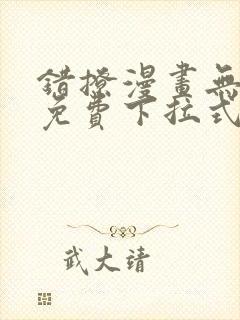 錯撩漫畫無
免費下拉式
武大靖